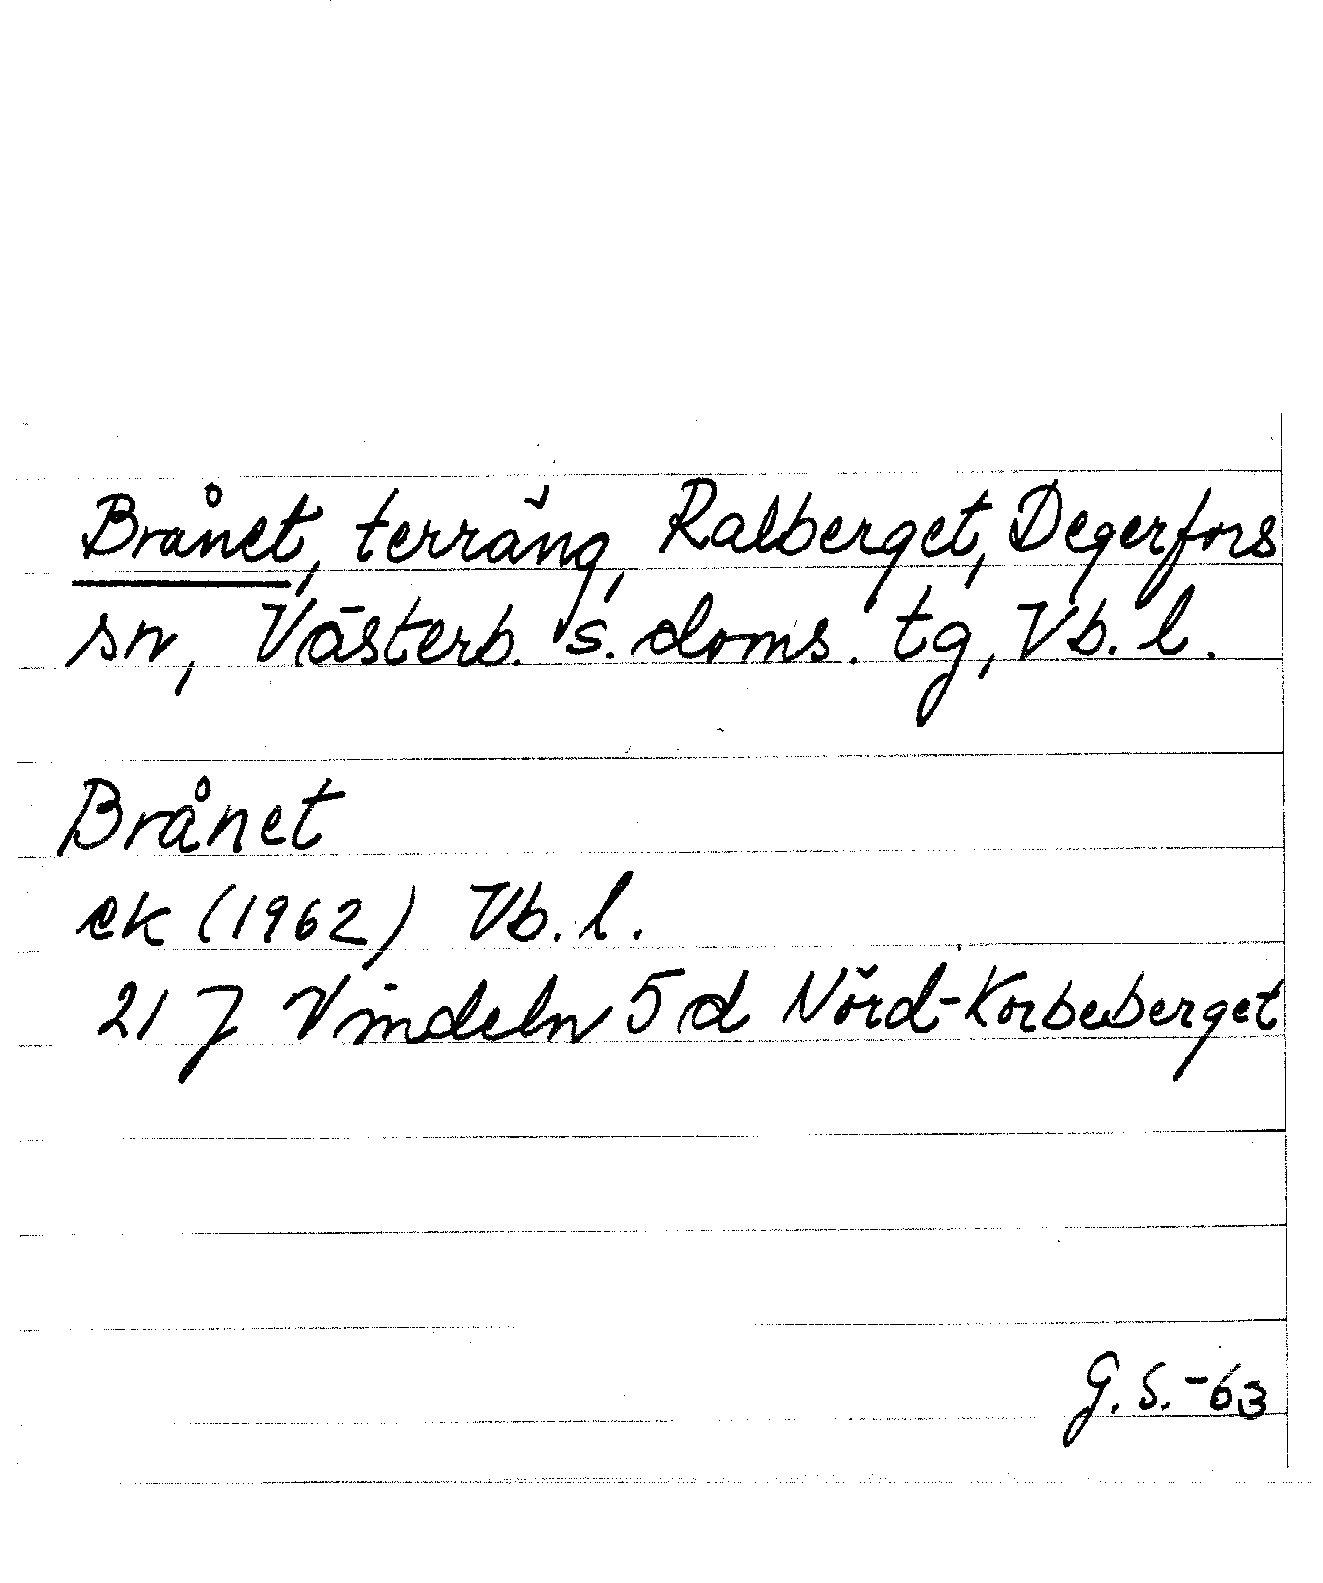 Brånet, terräng, Ralberget, Degerfors
sn, Västerb. s. doms. tg, Vb. l.
Brånet
ek (1962) Vb. l.
21 J Vindeln 5 d Nörd-Korbeberget
G. S. -63